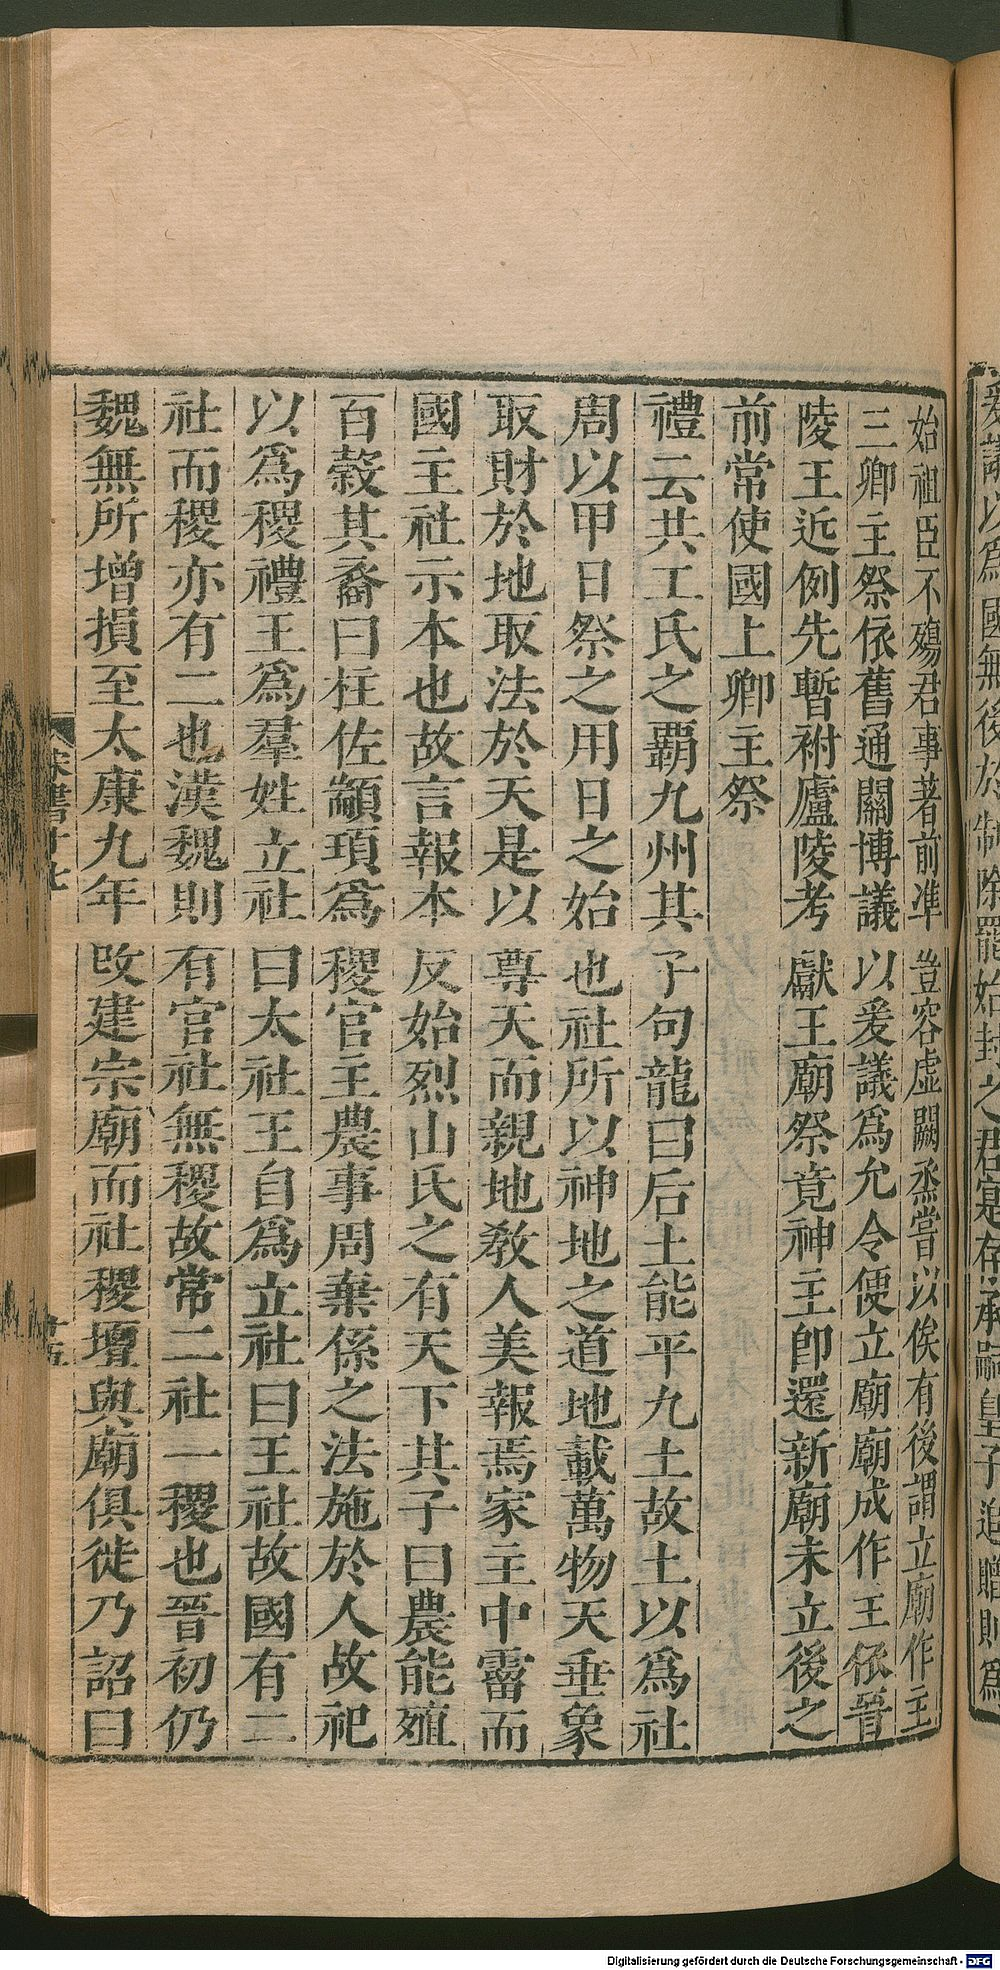 爰議以爲國無後於制除罷始封之君寔存承嗣皇子追贈則爲
始祖臣不殤君事著前準豈容虛闕烝嘗以俟有後謂立廟作主
三卿主祭依舊通關博議以爰議爲允令便立廟廟成作主依晉
陵王近例先暫祔廬陵考獻王廟祭竟神主即還新廟未立後之
前常使國上卿主祭
禮云共工氏之霸九州其子句龍曰后土能平九土故土以爲社
周以甲日祭之用日之始也社所以神地之道地載萬物天垂象
取財於地取法於天是以尊天而親地教人美報焉家主中霤而
國主社示本也故言報本反始烈山氏之有天下其子曰農能殖
百穀其裔曰柱佐顓頊爲稷官主農事周棄係之法施於人故祀
以爲稷禮王爲羣姓立社曰太社王自爲立社曰王社故國有二
社而稷亦有二也漢魏則有官社無稷故常二社一稷也晉初仍
魏無所增損至太康九年改建宗廟而社稷壇與廟俱徙乃詔曰
宋書十七
十五
Digitalisierung gefördert durch die Deutsche Forschungsgemeinschaft - DFG